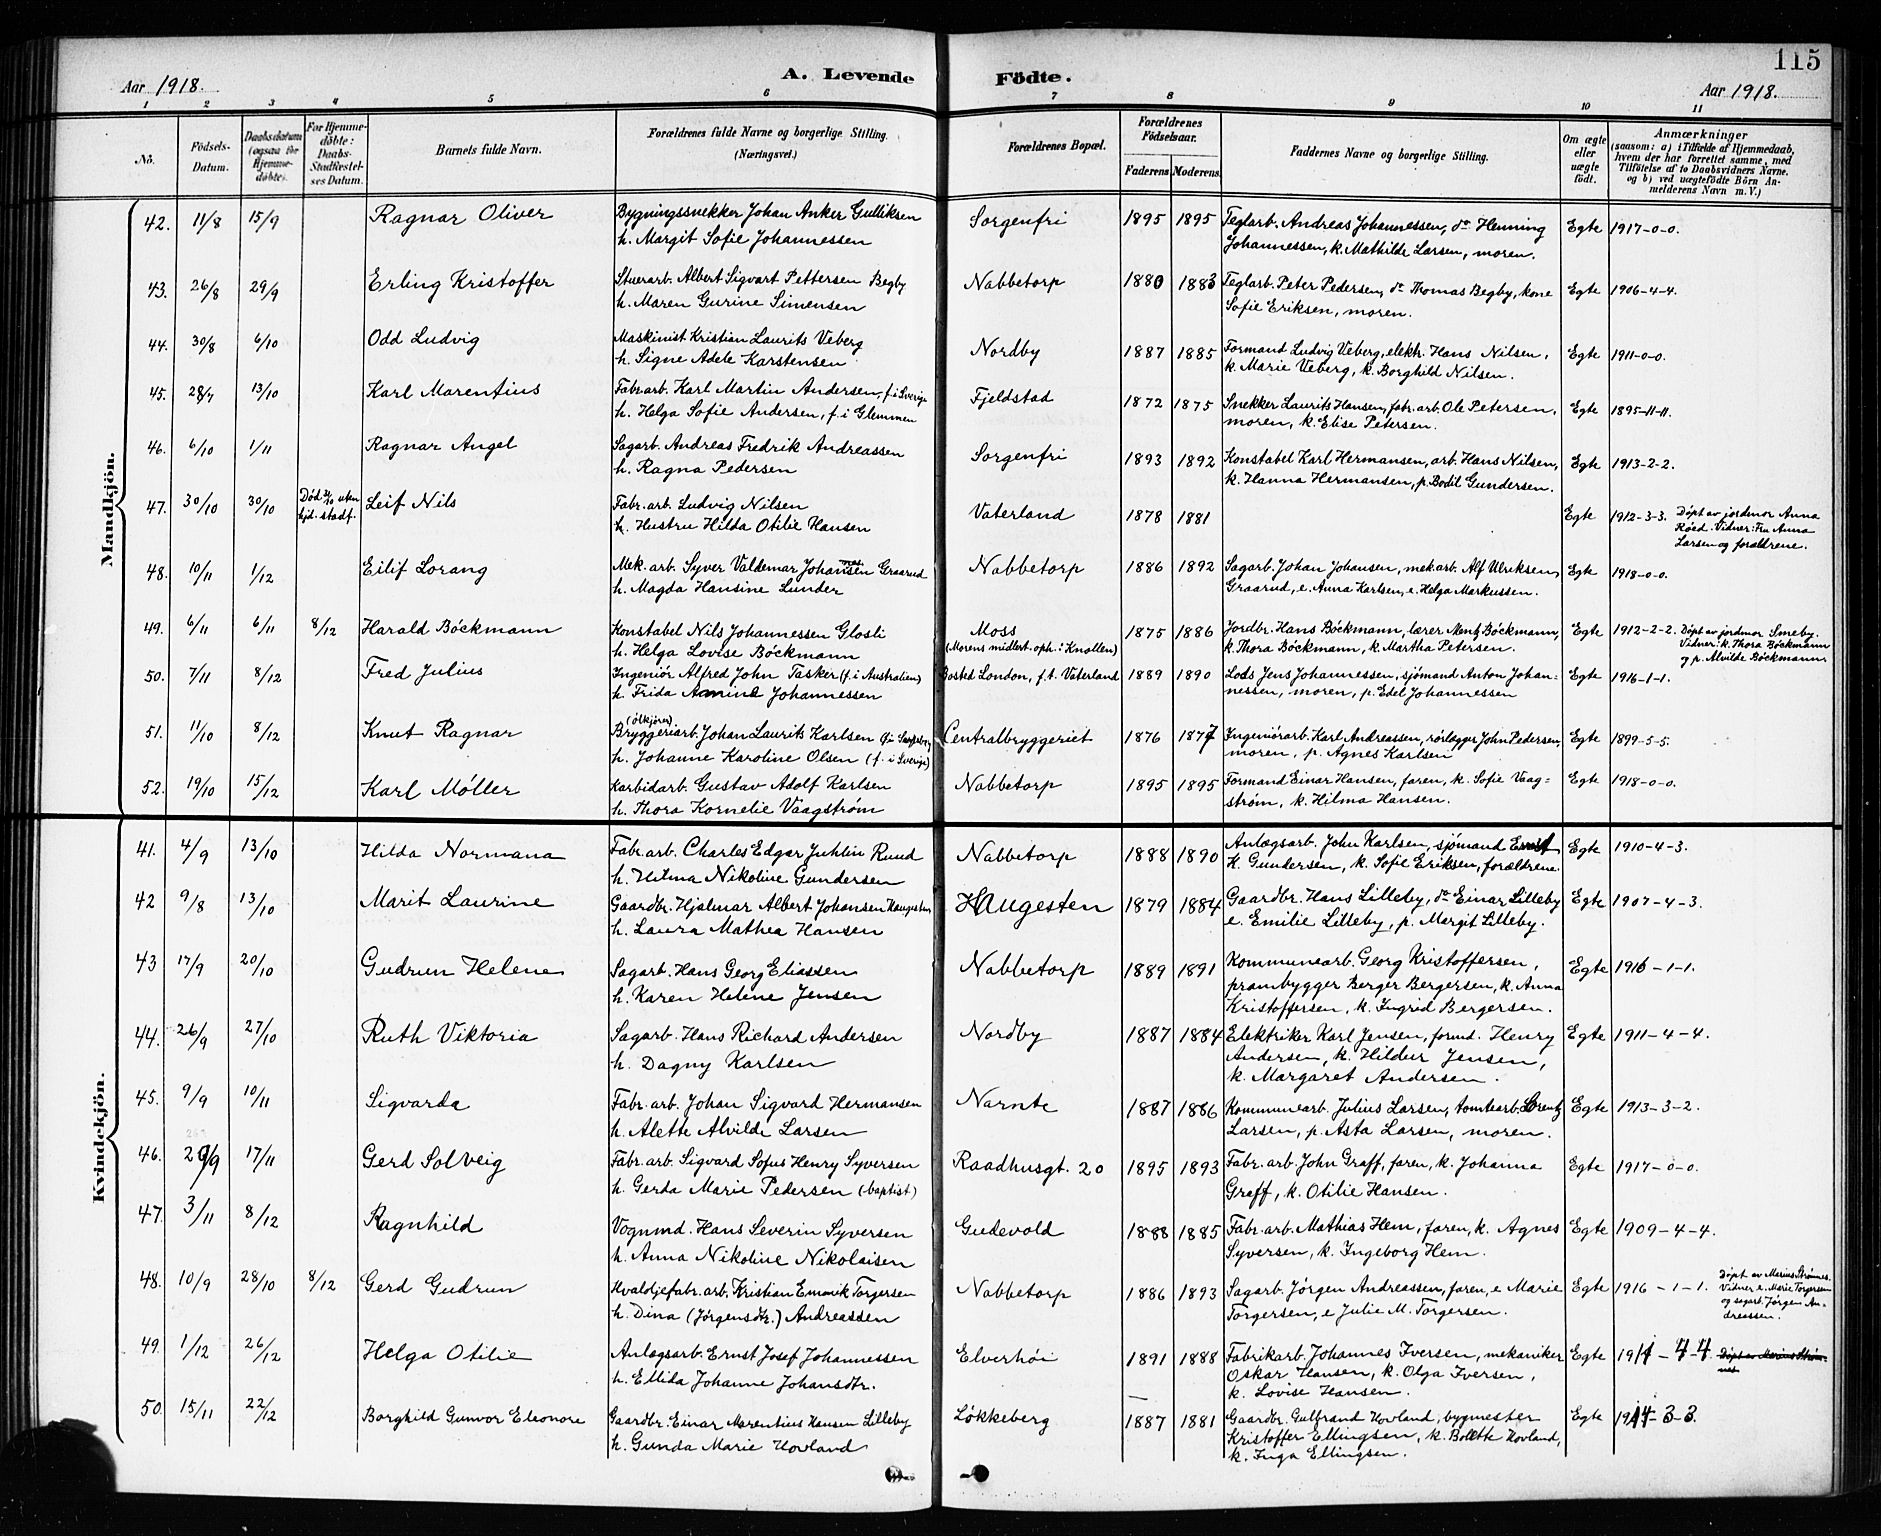 115
Aar 1918. A. Levende Födte. Aar 1918.
1 2 3 4 5 6 7 8 9 10 11
No. Födsels-Datum. Daabsdatum (ogsaa for Hjemme-döbte). For Hjemme-döbte: Daabs-Stadfæstel-ses Datum. Barnets fulde Navn. Forældrenes fulde Navne og borgerlige Stilling. (Næringsvei.) Forældrenes Bopæl. Forældrenes Födselsaar. Faderens Moderens Faddernes Navne og borgerlige Stilling. Om ægte eller uægte födt. Anmærkninger (saasom: a) i Tilfælde af Hjemmedaab, hvem der har forrettet samme, med Tilföielse af to Daabsvidners Navne. og b) ved uægtefödte Börn An-melderens Navn m. V.)
Mandkjön.
42. 11/8 15/9 Ragnar Oliver Bygningssnekker Johan Anker Gulliksen Sorgenfri 1895 1895 Teglarb. Andreas Johannessen, do Henning Egte 1917-0-0.
h. Margit Sofie Johannessen Johannessen, k. Mathilde Larsen, moren.
43. 26/8 29/9 Erling Kristoffer Stuerarb. Albert Sigvart Pettersen Begby Nabbetorp 1880 1883 Teglarb. Peter Pedersen, do Thomas Begby, kone Egte 1906-4-4.
h. Maren Gurine Simensen Sofie Eriksen, moren.
44. 30/8 6/10 Odd Ludvig Maskinist Kristian Laurits Veberg Nordby 1887 1885 Formand Ludvig Veberg, elektr. Hans Nilsen, Egte 1911-0-0.
h. Signe Adele Karstensen k. Marie Veberg, k. Borghild Nilsen.
45. 28/7 13/10 Karl Marentius Fabr.arb. Karl Martin Andersen, f. i Sverige Fjeldstad 1872 1875 Snekker Laurits Hansen, fabr. arb. Ole Petersen, Egte 1895-11-11.
h. Helga Sofie Andersen, f. i Glemmen moren, k. Elise Petersen.
46. 6/10 1/11 Ragnar Angel Sagarb. Andreas Fredrik Andreassen Sorgenfri 1893 1892 Konstabel Karl Hermansen, arb. Hans Nilsen, Egte 1913-2-2.
h. Ragna Pedersen k. Hanna Hermansen, p. Bodil Gundersen.
47. 30/10 30/10 Död 31/10 uten hjd. stadf. Leif Nils Fabr. arb. Ludvig Nilsen Vaterland 1878 1881 Egte 1912-3-3. Döpt av jordmor Anna
h. Hustru Hilda Otilie Hansen Röed. Vidner: Fru Anna
Larsen og forældrene.
48. 10/11 1/12 Eilif Lorang Mek. arb. Syver Valdemar Johansen Graarud Nabbetorp 1886 1892 Sagarb. Johan Johansen, mek.arb. Alf Ulriksen, Egte 1918-0-0.
h. Magda Hansine Lunder Graarud, e. Anna Karlsen, e. Helga Markussen.
49. 6/11 6/11 8/12 Harald Böckmann Konstabel Nils Johannessen Glosli Moss 1875 1886 Jordbr. Hans Böckmann, lærer Mentz Böckmann, Egte 1912-2-2. Döpt av jordmor Smeby.
h. Helga Lovise Böckmann (Morens midlert. oph.: Knollen) k. Thora Böckmann, k. Martha Petersen. Vidner: k. Thora Böckmann
og p. Alvilde Böckmann.
50. 7/11 8/12 Fred Julius Ingeniör Alfred John Tasker (f. i Australien) Bosted London, f. t. Vaterland 1889 1890 Lods Jens Johannessen, sjömand Anton Johan= Egte 1916-1-1.
h. Frida Amine Johannessen nessen, moren, p. Edel Johannessen
51. 11/10 8/12 Knut Ragnar (ölkjörer) Bryggeriarb. Johan Laurits Karlsen Centralbryggeriet 1876 1877 Ingeniörarb. Karl Andreassen, rörlægger John Pedersen, Egte 1899-5-5.
h. Johanne Karoline Olsen (f. i Sverige) moren, p. Agnes Karlsen
52. 19/10 15/12 Karl Möller Karbidarb. Gustav Adolf Karlsen Nabbetorp 1895 1895 Formand Einar Hansen, faren, k. Sofie Vaag= Egte 1918-0-0.
h. Thora Kornelie Vaagström ström, k. Hilma Hansen.
Kvindekjön.
41. 4/9 13/10 Hilda Normana Fabr. arb. Charles Edgar Juhlin Ruud Nabbetorp 1888 1890 Anlægsarb. John Karlsen, sjömand Ernst Egte 1910-4-3.
h. Hilma Nikoline Gundersen K. Gundersen, k. Sofie Eriksen, forældrene.
42 9/8 13/10 Marit Laurine Gaardbr. Hjalmar Albert Johansen Haugesten Haugesten 1879 1884 Gaardbr. Hans Lilleby, do Einar Lilleby Egte 1907-4-3.
h. Laura Mathea Hansen e. Emilie Lilleby, p. Margit Lilleby.
43 17/9 20/10 Gudrun Helene Sagarb. Hans Georg Eliassen Nabbetorp 1889 1891 Kommunearb. Georg Kristoffersen, Egte 1916-1-1.
h. Karen Helene Jensen prambygger Berger Bergersen, k. Anna
Kristoffersen, k. Ingrid Bergersen.
44. 26/9 27/10 Ruth Viktoria Sagarb. Hans Richard Andersen Nordby 1887 1884 Elektriker Karl Jensen, formd. Henry Egte 1911-4-4.
h. Dagny Karlsen Andersen, k. Hildur Jensen,
k. Margaret Andersen.
45. 9/9 10/11 Sigvarda Fabr. arb. Johan Sigvard Hermansen Narnte 1887 1886 Kommunearb. Julius Larsen, tomtearb. Lorentz Egte 1913-3-2.
h. Alette Alvilde Larsen Larsen, p. Asta Larsen, moren.
46. 17/11 Gerd Solveig Fabr. arb. Sigvard Sofus Henry Syversen Raadhusgt. 20 1895 1893 Fabr. arb. John Graff, faren, k. Johanna Egte 1917-0-0.
h. Gerda Marie Pedersen (baptist) Graff, k. Otilie Hansen.
47. 3/11 8/12 Ragnhild Vognmd. Hans Severin Syversen Gudevold 1888 1885 Fabr. arb. Mathias Hem, faren, k. Agnes Egte 1909-4-4.
h. Anna Nikoline Nikolaisen Syversen, k. Ingeborg Hem.
48. 10/9 28/10 8/12 Gerd Gudrun Hvaloljefabr. arb. Kristian Emanik Torgersen Nabbetorp 1886 1893 Sagarb. Jörgen Andreassen, faren, e Marie Egte 1916-1-1. Döpt av Marius Strömnes.
h. Dina (Jörgensdtr.) Andreassen Torgersen, e Julie M. Torgersen. Vidner e. Marie Torgersen
og sagarb. Jörgen An-
dreassen.
49. 1/12 26/12 Helga Otilie Anlægsarb. Ernst Josef Johannessen Elverhöi 1891 1888 Fabrikarb. Johannes Iversen, mekaniker Egte 1911-4-4. Döpt av Marius Ström-nes
h. Ellida Johanne Johansdtr. Oskar Hansen, k. Olga Iversen,
k. Lovise Hansen.
50. 15/11 22/12 Borghild Gunvor Eleonore Gaardbr. Einar Marentius Hansen Lilleby Lökkeberg 1887 1881 Gaardbr. Gulbrand Hovland, bygmester Egte 1914-3-3.
h. Gunda Marie Hovland Kristoffer Ellingsen, k. Bolette Hovland,
k. Inga Ellingsen.